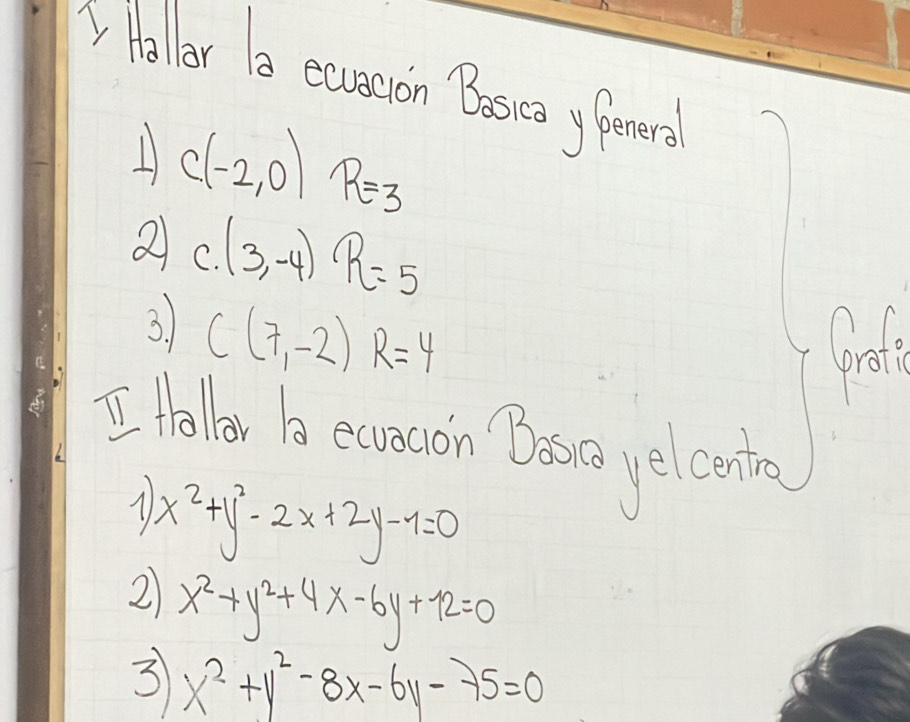 I Hallar la ecuación Basica y General
1) C(-2,0) R=3
2) C.(3,-4) R=5
3.) C(7,-2) R=4
II Hallar la ecuación Basica y el centro
1) x²+y²-2x+2y-1=0
2) x²+y²+4x-6y+12=0
3) x²+y²-8x-6y-75=0
Grafic